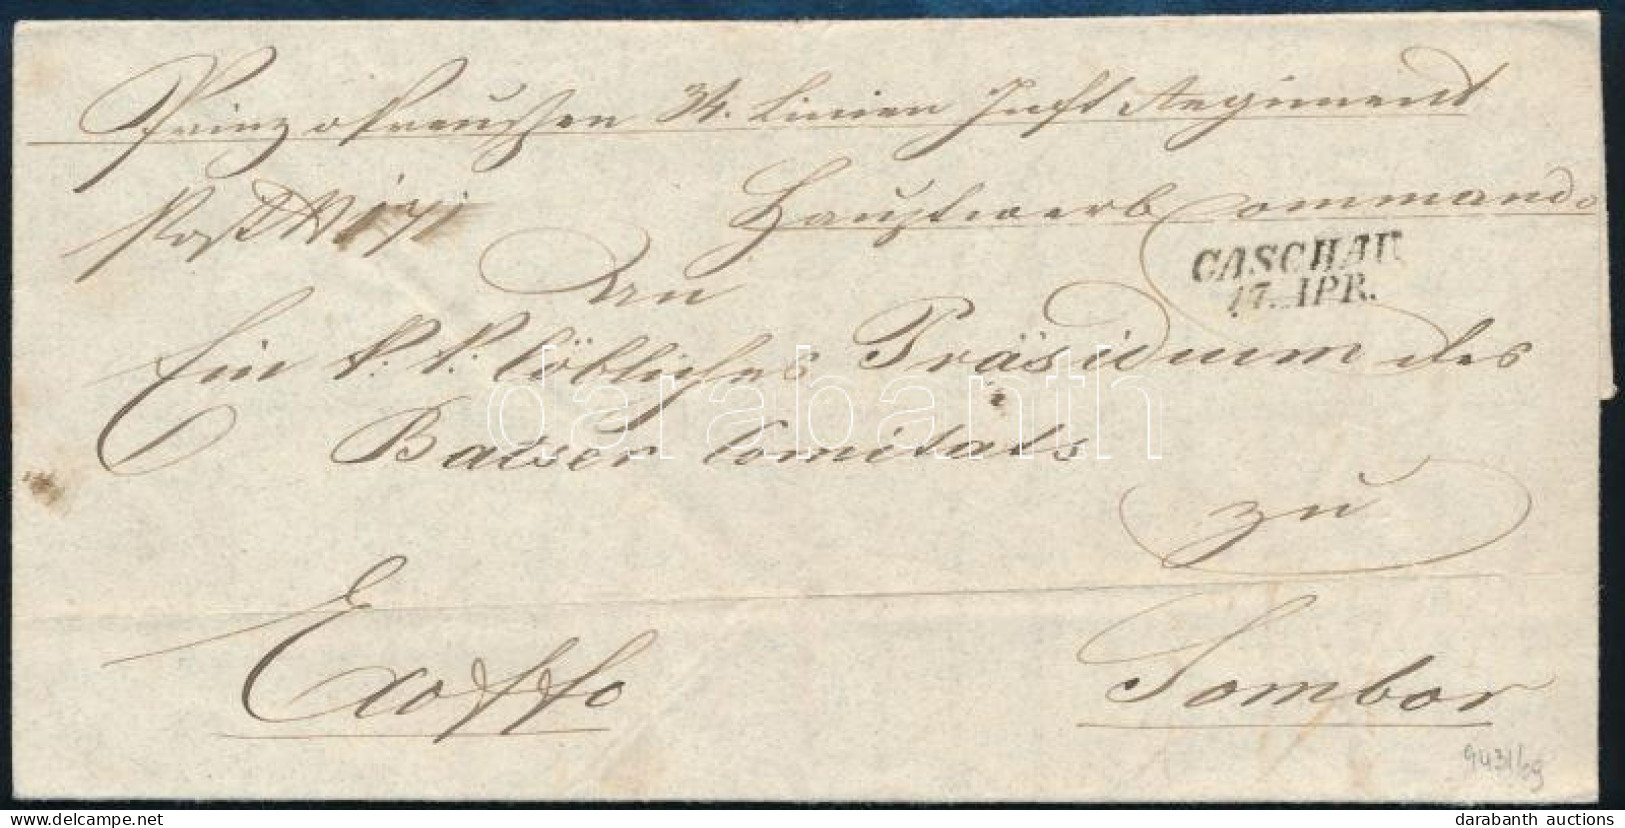 Prinz v Preussen 34. Linien Inft Regiment
Hauptwerb Commando
CASCHAU
17. APR.
An
Ein k: k: löbliches Präsidium des
Bacser Comitats
zu
Exoffo
Sombor
9431/09
darabanth
the-collection.net
darabanth auctions